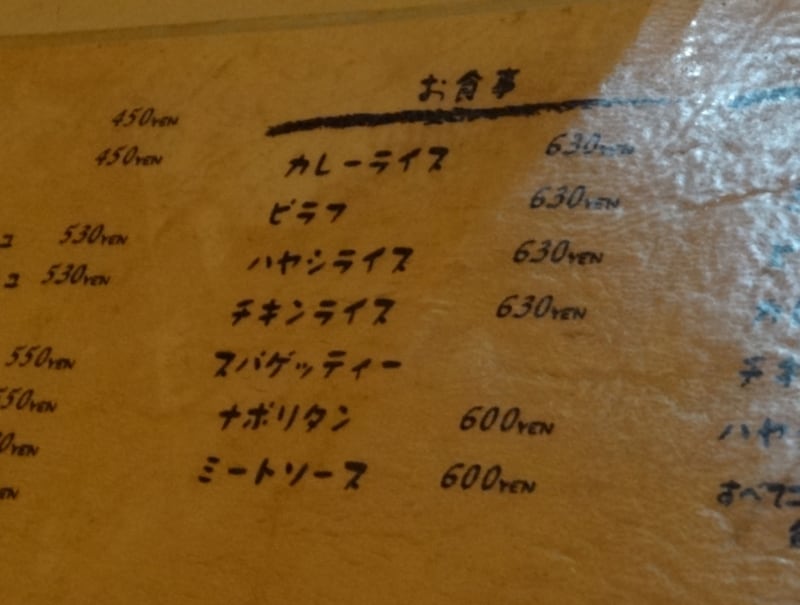 450YEN
450YEN
ュ 530YEN
ュ 530YEN
550YEN
550YEN
0YEN
YEN
お食事
カレーライス 630YEN
ピラフ 630YEN
ハヤシライス 630YEN
チキンライス 630YEN
スパゲッティー
ナポリタン 600YEN
ミートソース 600YEN
ピ
カレ
チキ
ハヤ
すべて